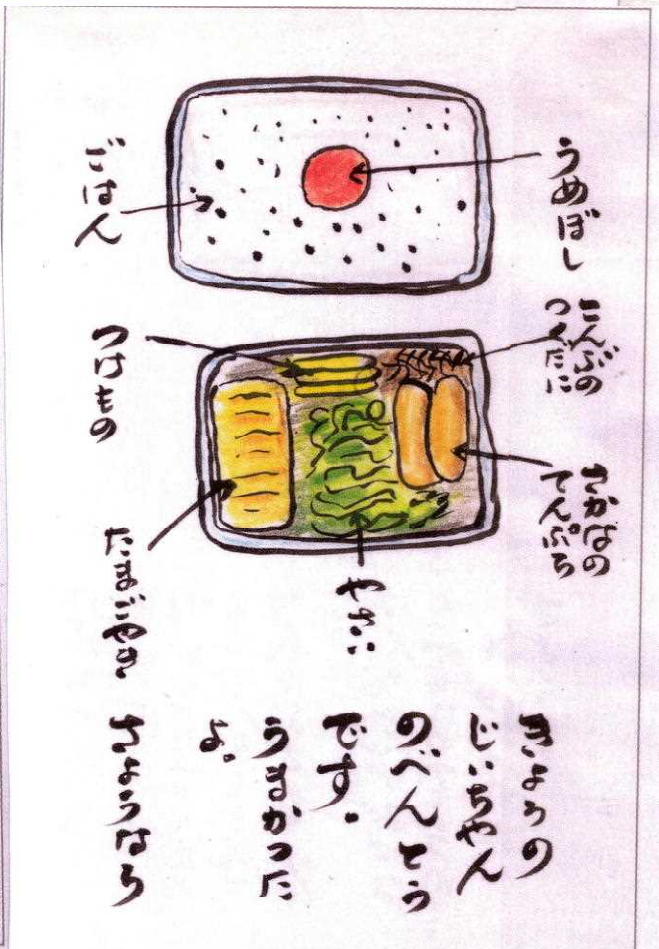 うめぼし
ごはん
こんぶの
つくだに
つけもの
さかなの
てんぷら
たまごやき
やさい
きょうの
じいちゃん
のべんとう
です。
うまかった
よ。
さようなら